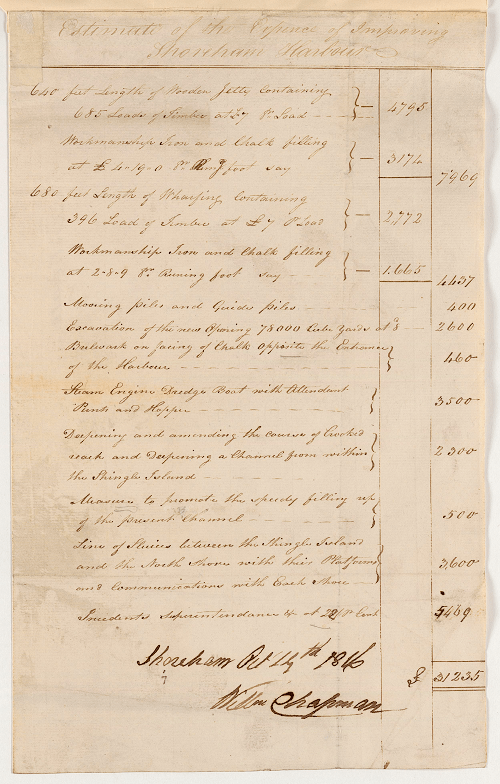 Estimate of the Expence of Improving
Shoreham Harbour
640 feet Length of Wooden Jetty Containing
685 Loads of Timber at £7 Pr Load — 4795
Workmanship Iron and Chalk filling
at £ 4-19-0 Pr Runing foot say — 3174
7969
680 feet Length of Wharfing Containing
396 Load of Timber at £7 Pr Load — 2,772
Workmanship Iron and Chalk filling
at 2-8-9 Pr Runing foot say — 1.665
4437
Mooring piles and Guide piles 400
Excavation of the new Opening 78000 Cube Yards at 8 2600
Bulwark or facing of Chalk Opposite the Entrance
of the Harbour 460
Steam Engine Dredge Boat with Attendant
Punts and Hopper 3500
Deepening and amending the course of Crooked
reach and Deepening a Channel from within
the Shingle Island 2300
Measure to promote the speedy filling up
of the present Channel 500
Line of Sluices between the Shingle Island
and the North Shore with their Platforms
and Communications with Each Shore 3,600
Incidents Superintendance & at Pr Cent 5469
£ 31235
Shoreham Oct 14th 1816
Willm Chapman